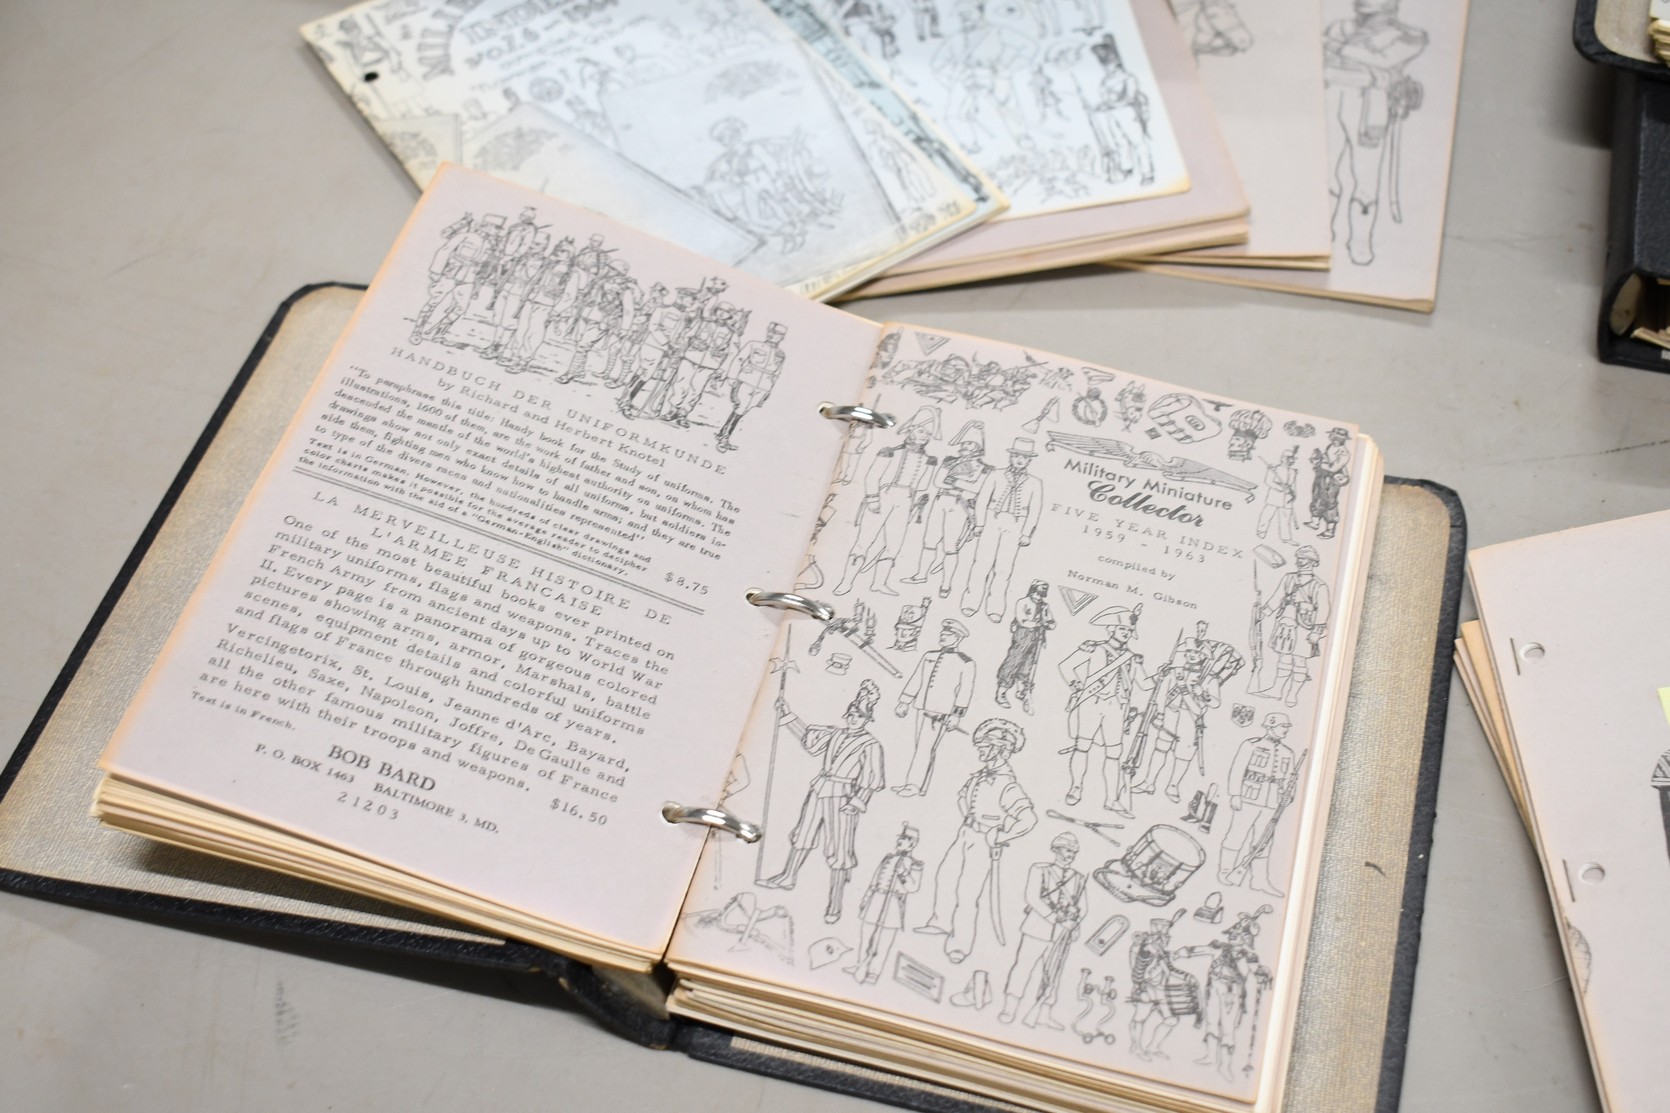 HANDBUCH DER UNIFORMKUNDE
by Richard and Herbert Knotel
"To paraphrase this title: Handy book for the Study of uniforms. The
illustrations, 1600 of them, are the work of father and son, on whom has
descended the mantle of the world's highest authority on uniforms. The
drawings show not only exact details of all uniforms, but soldiers in-
side them, fighting men who know how to handle arms; and they are true
to type of the divers races and nationalities represented"
Text is in German. However, the hundreds of clear drawings and
color charts makes it possible for the average reader to decipher
the information with the aid of a "German-English" dictionary.
$8.75
LA MERVEILLEUSE HISTOIRE DE
L'ARMEE FRANCAISE
One of the most beautiful books ever printed on
military uniforms, flags and weapons. Traces the
French Army from ancient days up to World War
II. Every page is a panorama of gorgeous colored
pictures showing arms, armor, Marshals, battle
scenes, equipment details and colorful uniforms
and flags of France through hundreds of years.
Vercingetorix, St. Louis, Jeanne d'Arc, Bayard,
Richelieu, Saxe, Napoleon, Joffre, DeGaulle and
all the other famous military figures of France
are here with their troops and weapons.
Text is in French.
$16.50
BOB BARD
P. O. BOX 1463 BALTIMORE 3, MD.
21203
Military Miniature
Collector
FIVE YEAR INDEX
1959 - 1963
compiled by
Norman M. Gibson